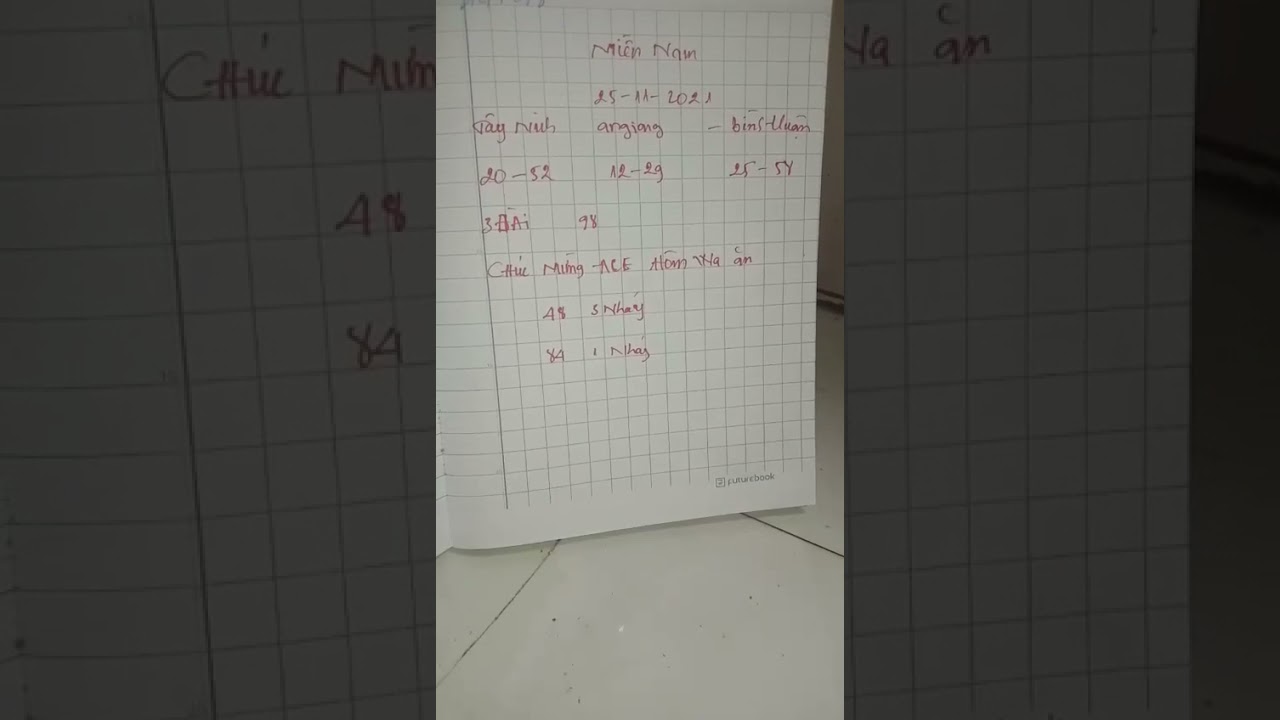 Miền Nam
25-11-2021
Tây Ninh angiang - bình thuận
20-52 12-29 25-54
3 ĐÀi 98
CHúc Mừng ACE Hôm Wa ăn
48 3 Nháy
84 1 Nháy
futurebook